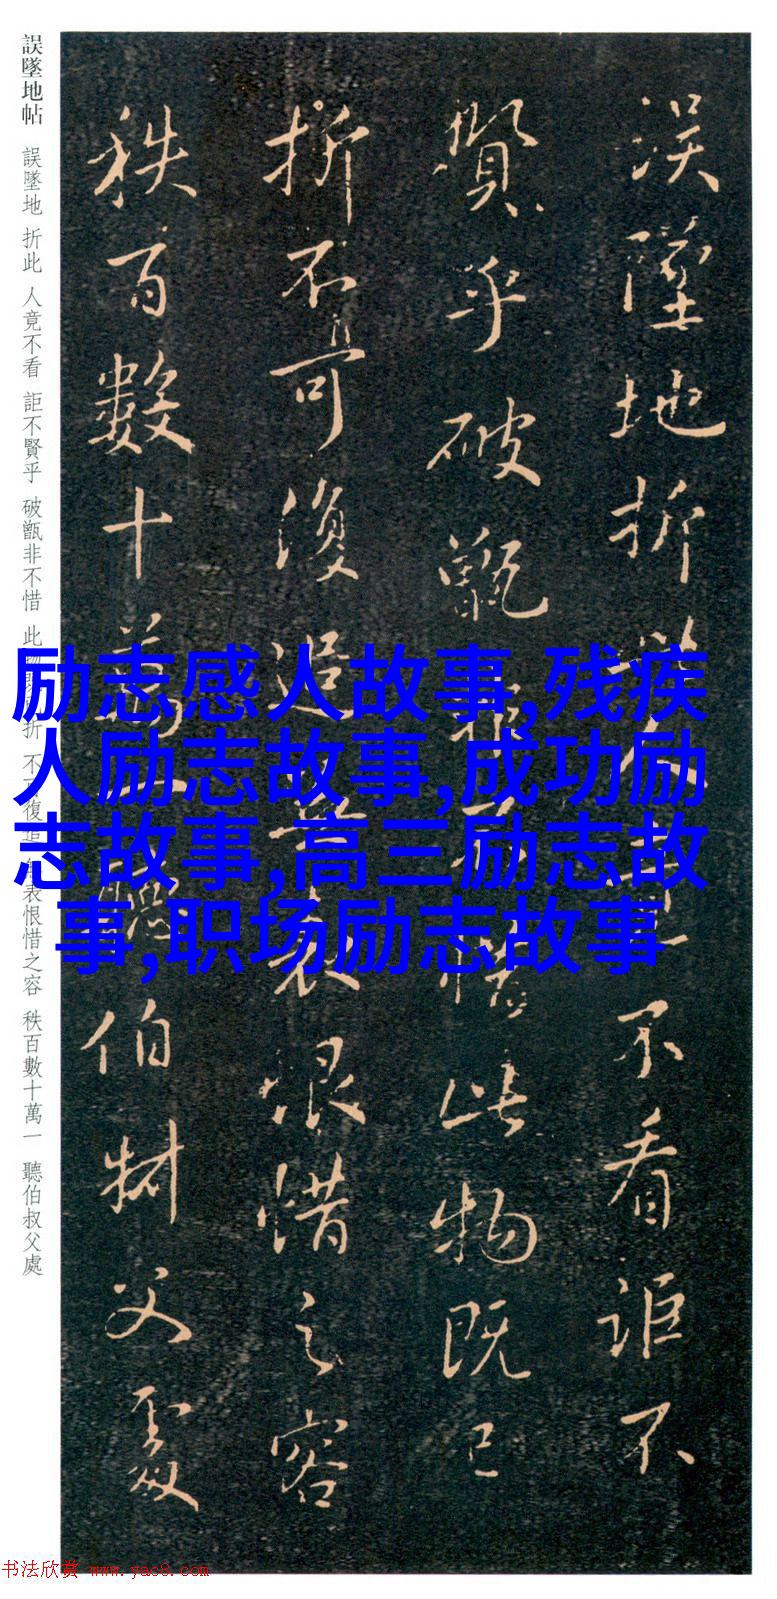 誤墜地折此人竟不看詎不
賢乎破甑非不惜此物既已
折不可復追無表恨惜之容
秩百數十萬一聽伯叔父處
誤墜地帖 誤墜地 折此 人竟不看 詎不賢乎 破甑非不惜 此物 折 不可復追 無表恨惜之容 秩百數十萬一 聽伯叔父處
励志感人故事,残疾
人励志故事,成功励
志故事,高三励志故
事,职场励志故事
书法欣赏 www.yac8.com